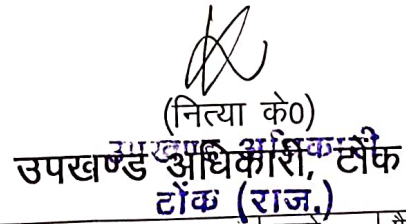 (नित्या के0)
उपखण्ड अधिकारी
उपखण्ड अधिकारी, टोंक
टोंक (राज.)